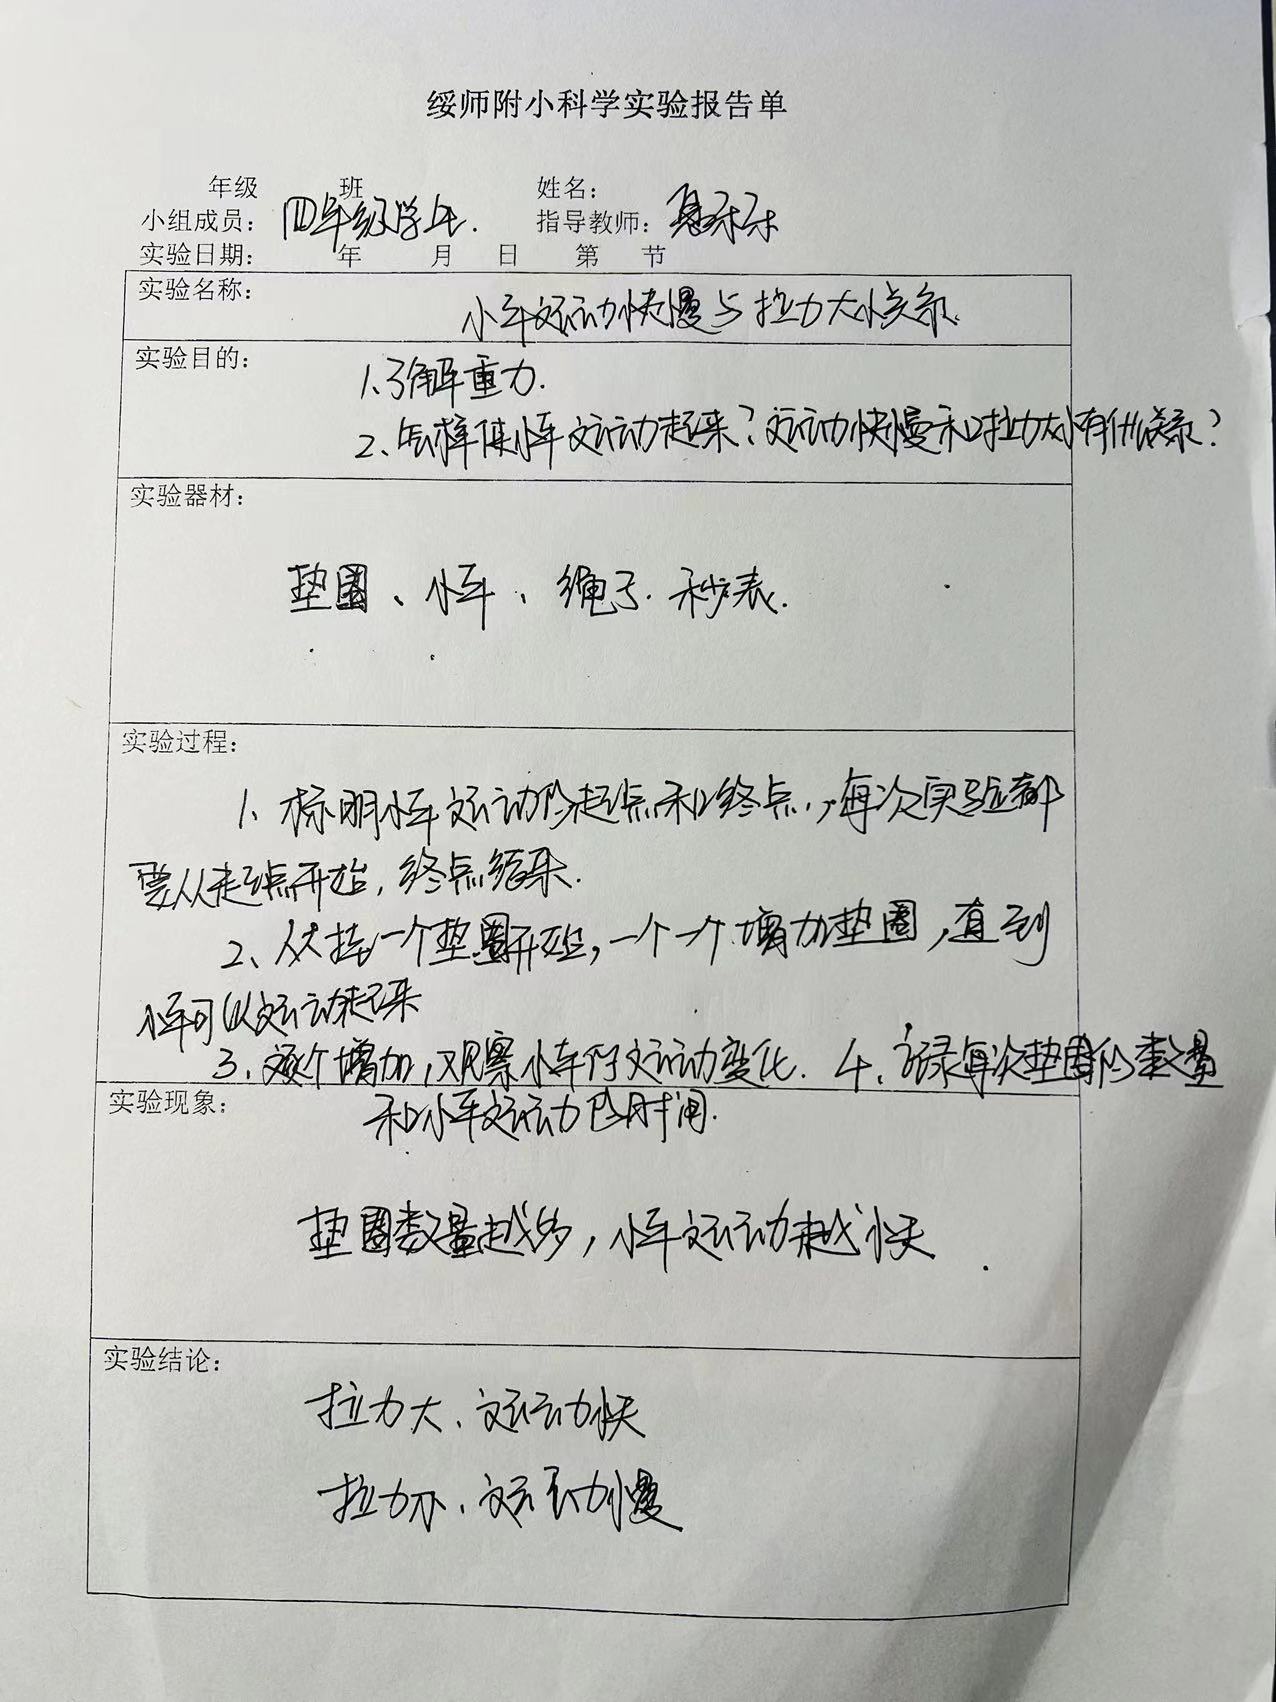 绥师附小科学实验报告单
年级 班 姓名:
小组成员: 四年级学年. 指导教师:
实验日期: 年 月 日 第 节
实验名称: 小车运动快慢与拉力大小关系.
实验目的: 1、了解重力.
2、怎样使小车运动起来?运动快慢和拉力大小有什么关系?
实验器材:
垫圈、小车、绳子.秒表.
实验过程:
1、标明小车运动的起点和终点,每次实验都
要从起点开始,终点结束.
2、从挂一个垫圈开始,一个一个增加垫圈,直到
小车可以运动起来
3、逐个增加,观察小车的运动变化. 4、记录每次垫圈的数量
实验现象: 和小车运动的时间.
垫圈数量越多,小车运动越快
实验结论:
拉力大、运动快
拉力小、运动慢